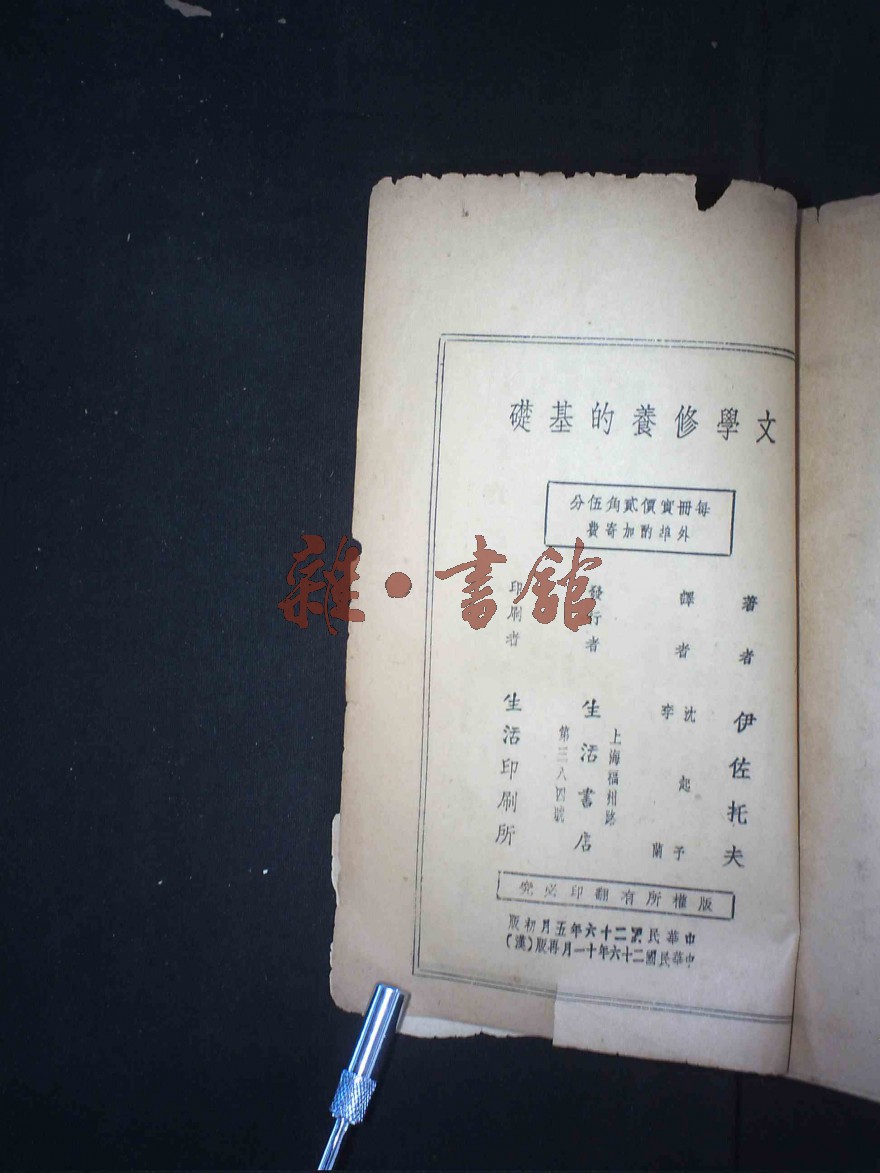 文學修養的基礎
每冊實價貳角伍分
外埠酌加寄費
著者 伊佐托夫
譯者 沈起予 李蘭
發行者 生活書店
上海福州路
第三八四號
印刷者 生活印刷所
版權所有翻印必究
中華民國二十六年五月初版
中華民國二十六年十一月再版(漢)
雜·書館